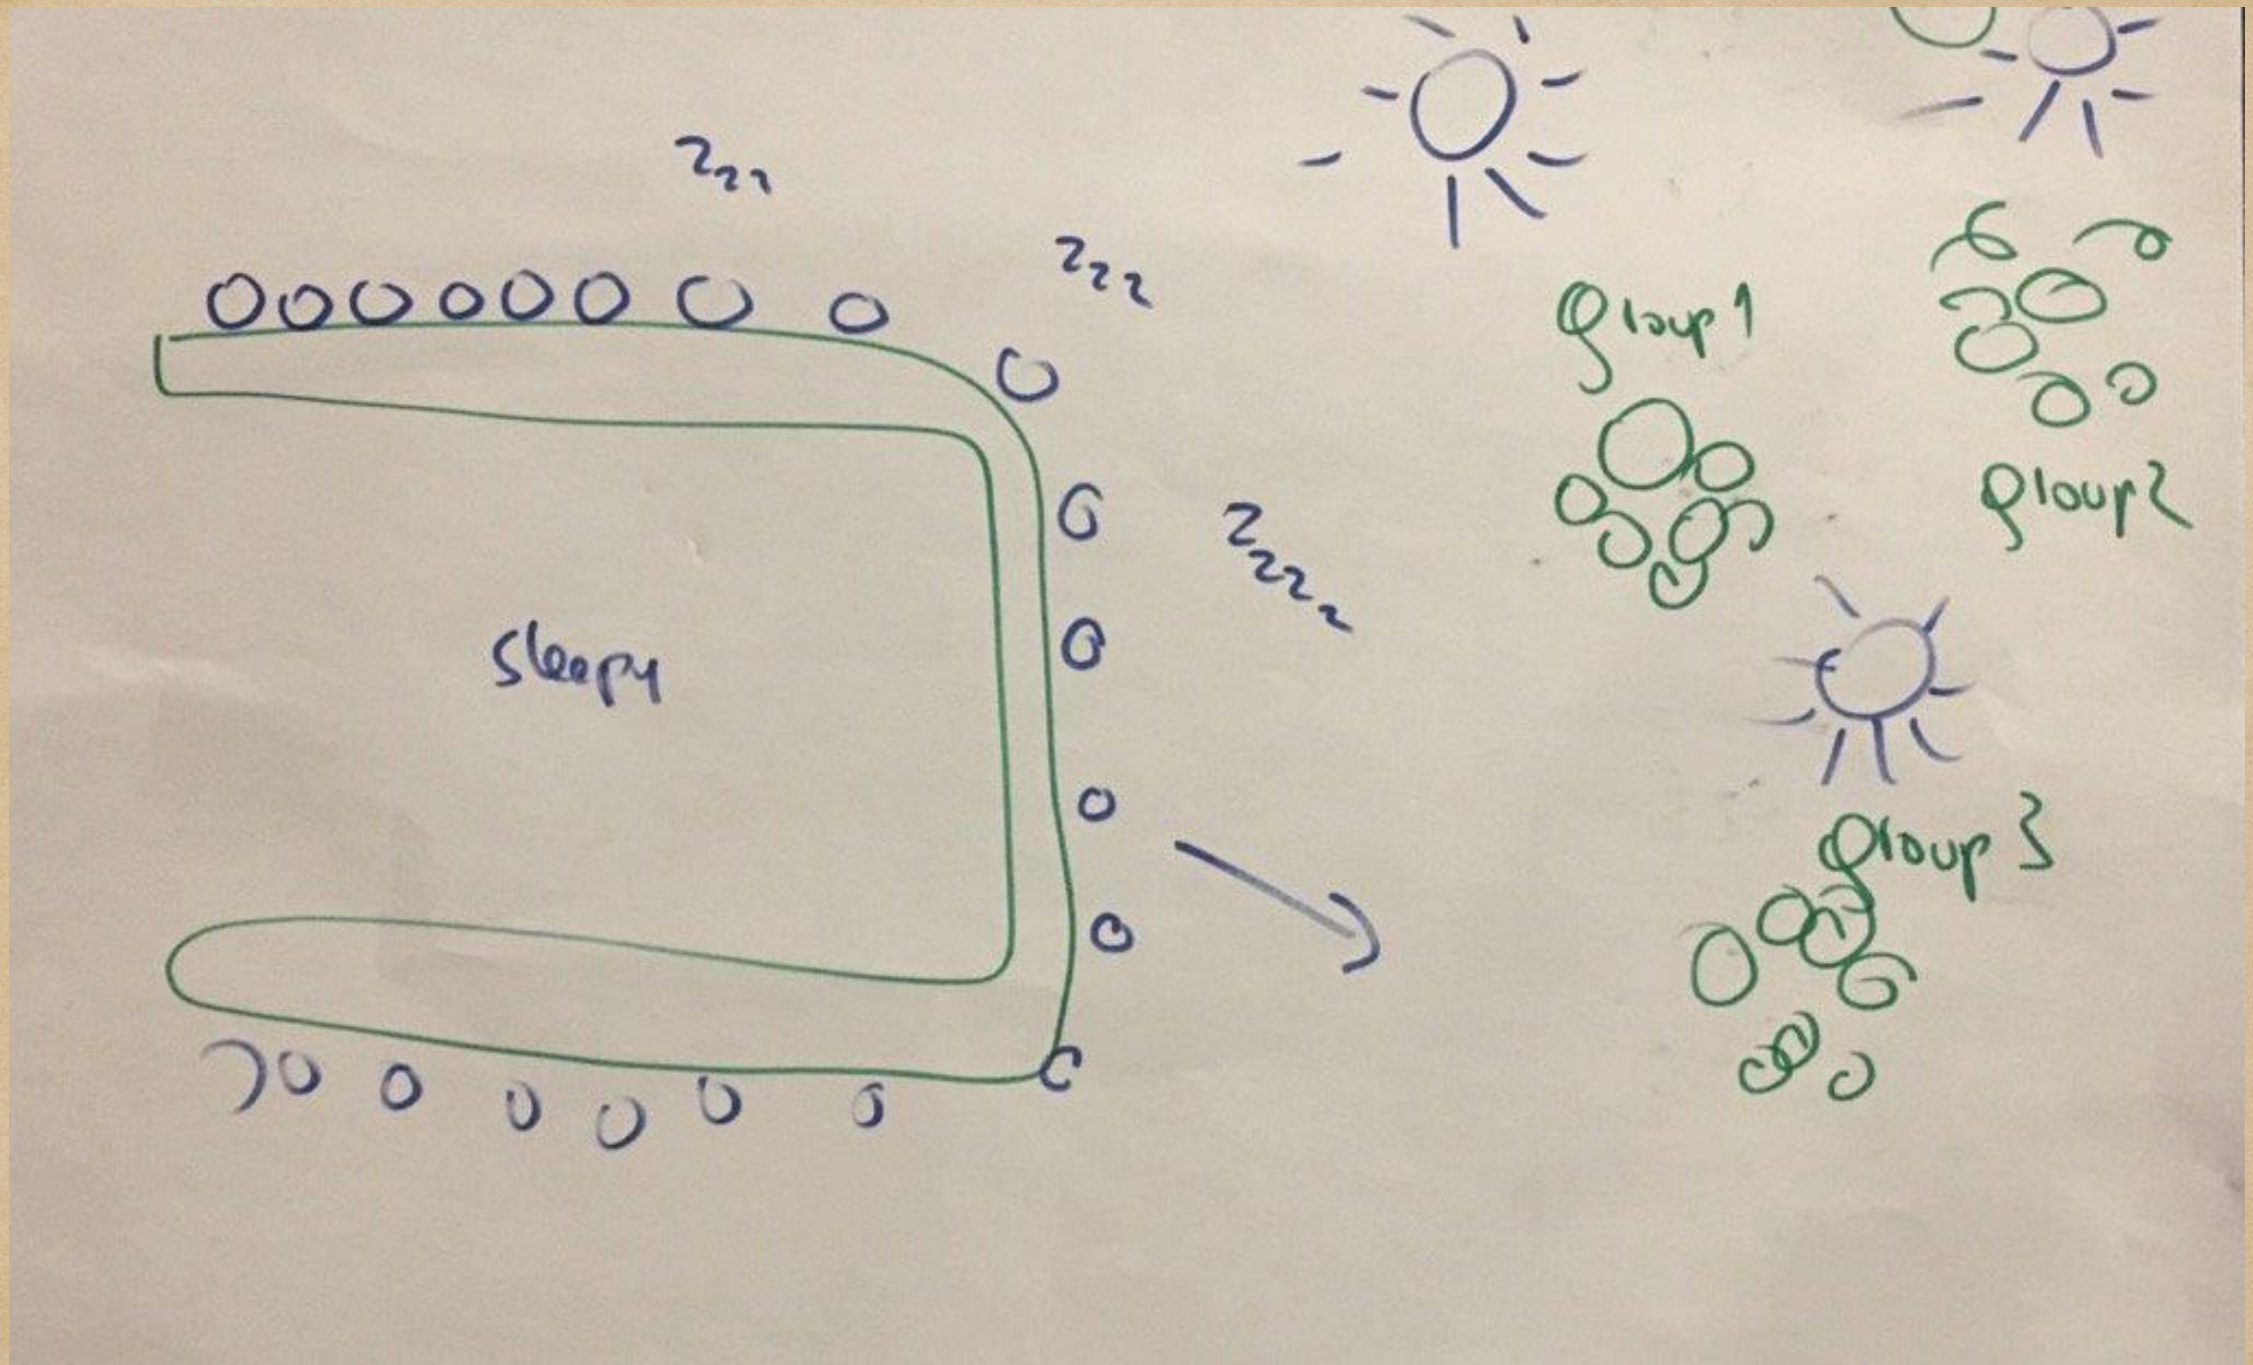 zzz
zzz
zzzz
sleepy
group 1
group 2
group 3